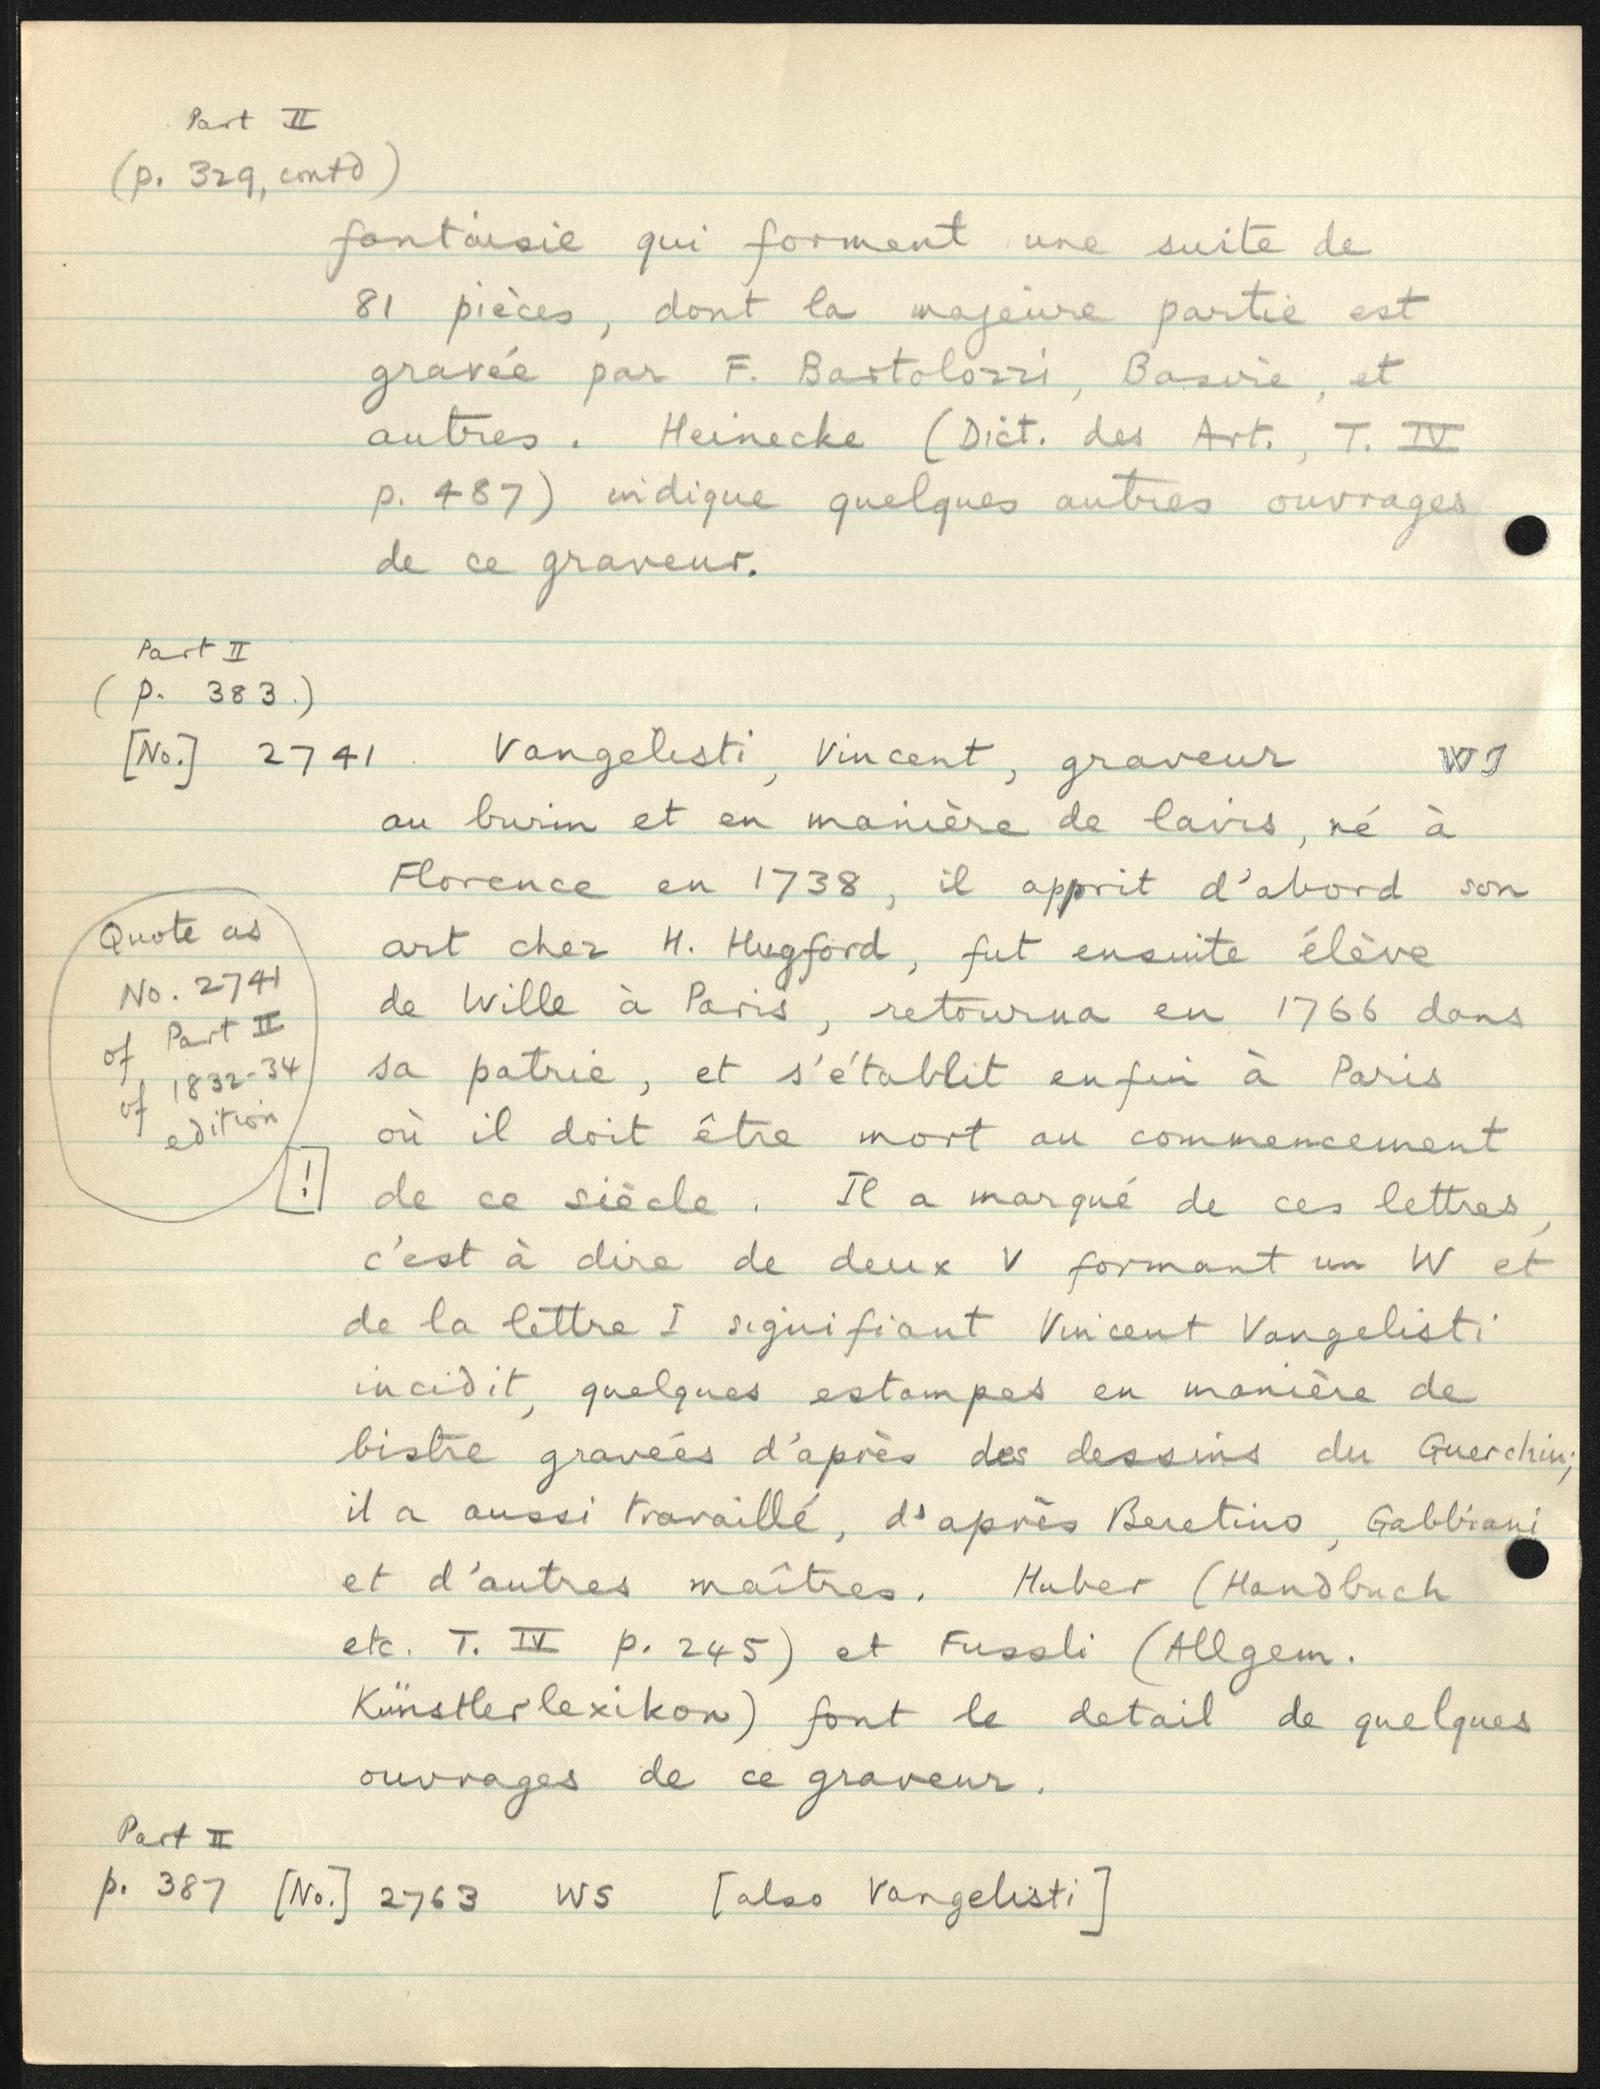 Part II
(p. 329, contd)
fantaisie qui forment une suite de
81 pièces, dont la majeure partie est
gravée par F. Bartolozzi, Basire, et
autres. Heinecke (Dict. des Art., T. IV
p. 487) indique quelques autres ouvrages
de ce graveur.
Part II
(p. 383.)
[No.] 2741. Vangelisti, Vincent, graveur WI
au burin et en manière de lavis, né à
Florence en 1738, il apprit d'abord son
art chez H. Hugford, fut ensuite élève
de Wille à Paris, retourna en 1766 dans
sa patrie, et s'établit enfin à Paris
où il doit être mort au commencement
de ce siècle. Il a marqué de ces lettres,
c'est à dire de deux V formant un W et
de la lettre I signifiant Vincent Vangelisti
incidit, quelques estampes en manière de
bistre gravées d'après des dessins du Guerchin;
il a aussi travaillé, d'après Beretino, Gabbiani
et d'autres maîtres. Huber (Handbuch
etc. T. IV p. 245) et Fussli (Allgem.
Künstlerlexikon) font le detail de quelques
ouvrages de ce graveur.
Quote as
No. 2741
of Part II
of 1832-34
edition
!
Part II
p. 387 [No.] 2763 WS [also Vangelisti]